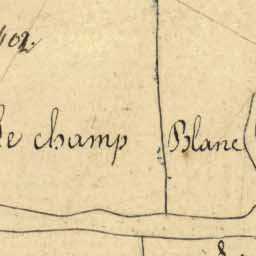 402.
Le champ Blanc